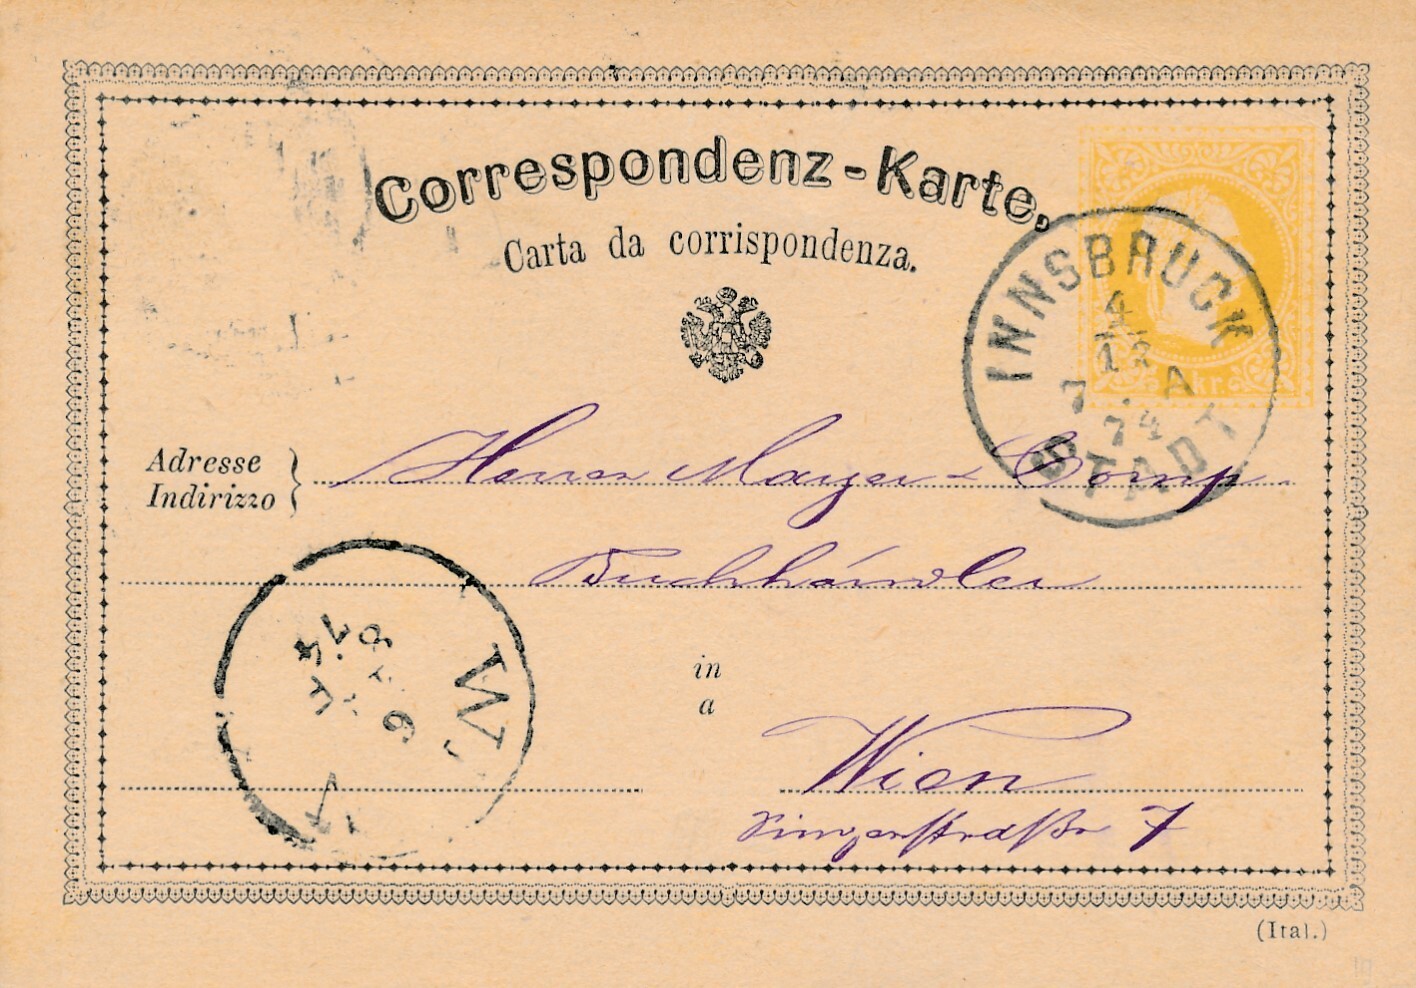 Correspondenz-Karte,
Carta da corrispondenza.
kr.
INNSBRUCK
4
12
7. A
74
STADT
Adresse
Indirizzo
Herrn Mayer & Comp.
Buchhändler
in
a
Wien
Singerstraße 7
W
6
74
(Ital.)